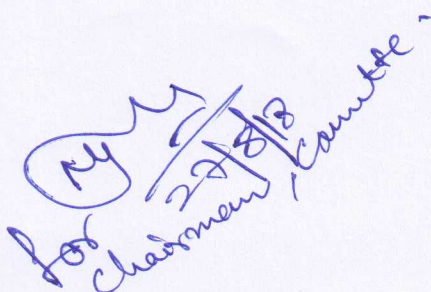 27/8/18
for
Chairman, Committee.